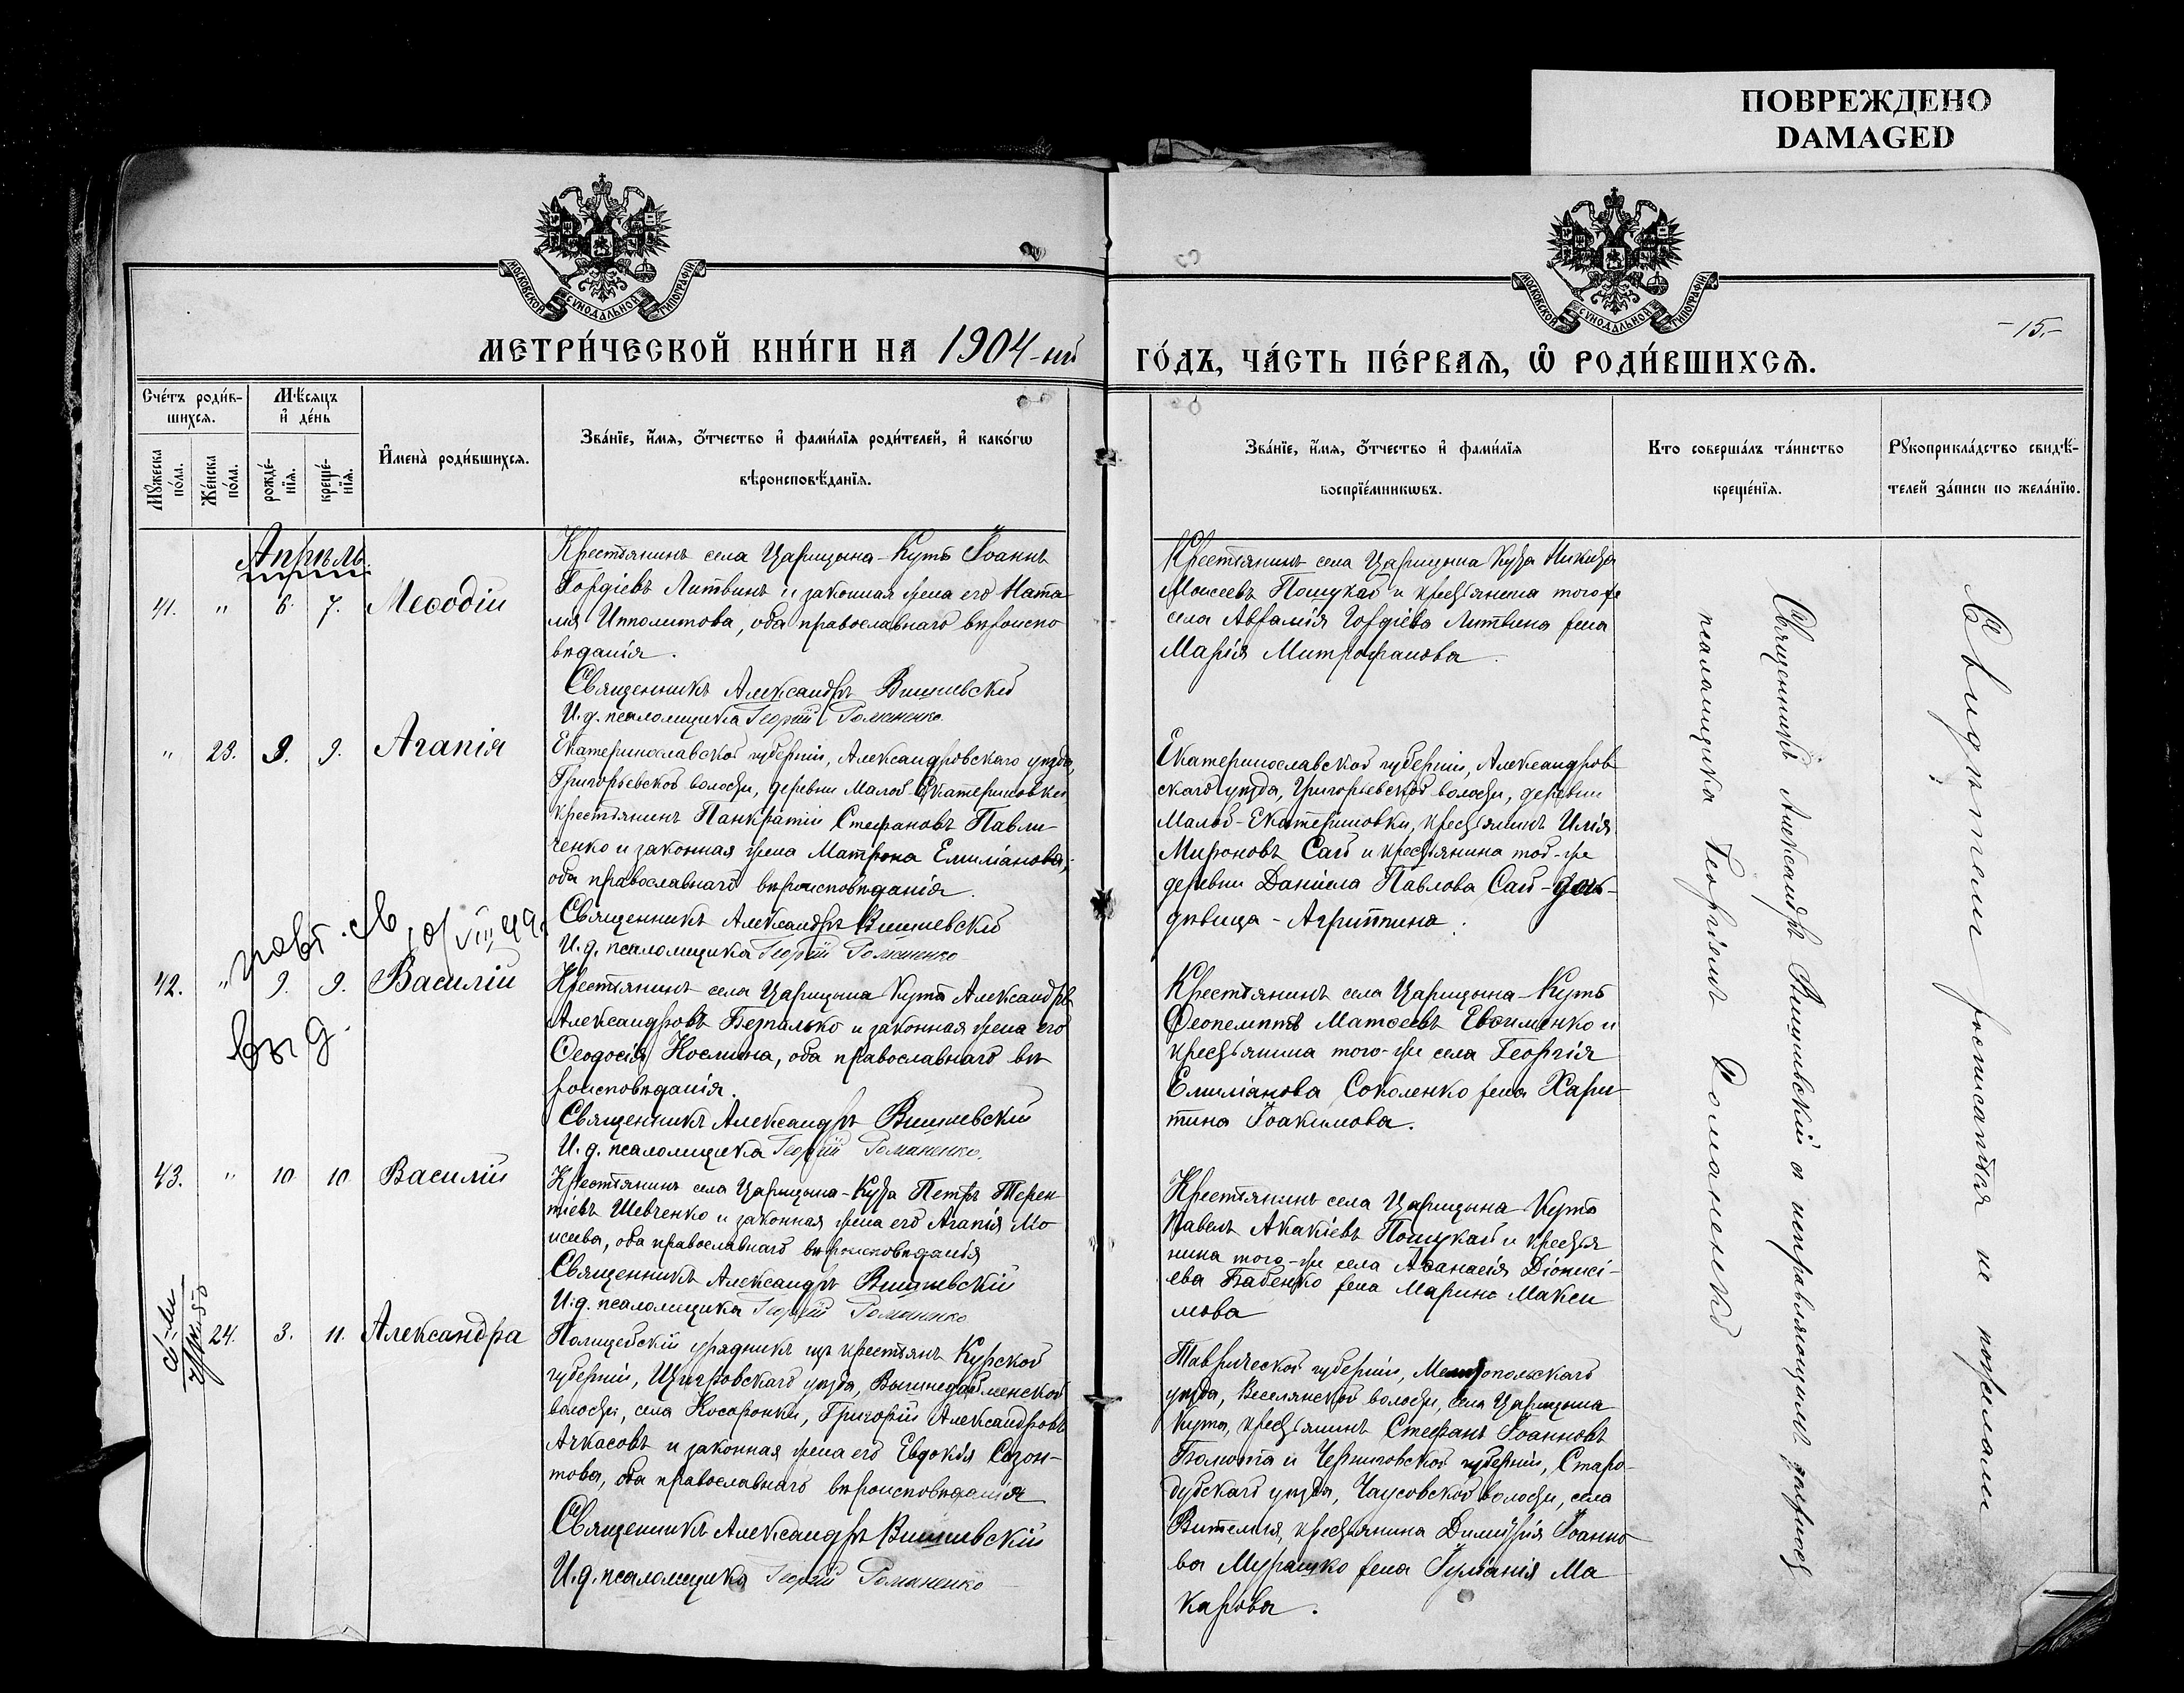 ПОВРЕЖДЕНО
DAMAGED
МОСКОВСКОЙ СѴНОДАЛЬНОЙ ТИПОГРАФІИ
МОСКОВСКОЙ СѴНОДАЛЬНОЙ ТИПОГРАФІИ
-15.-
МЕТРИ́ЧЕСКОЙ КНИ́ГИ НА 1904-ый
ГО́ДЪ, ЧА́СТЬ ПЕ́РВАѦ, Ѡ҆ РОДИ́ВШИХСѦ.
Сче́тъ роди́в-
шихсѧ.
Мꙋ́жеска по́ла.
Же́нска по́ла.
Мѣ́сѧцъ
и҆ де́нь
рожде́-
нїѧ.
креще́-
нїѧ.
И҆мена̀ роди́вшихсѧ.
Зва́нїе, и҆́мѧ, ѻ҆́тчество и҆ фами́лїѧ роди́телей, и҆ како́гѡ
вѣроисповѣ́данїѧ.
Зва́нїе, и҆́мѧ, ѻ҆́тчество и҆ фами́лїѧ
воспрїе́мникѡвъ.
Кто соверша́лъ та́инство
креще́нїѧ.
Рꙋкоприкла́дство свидѣ́-
телей за́писи по жела́нїю.
Апрѣль.
41. " 6. 7. Меѳодій
Крестьянинъ села Царицына-Кутъ Іоаннъ
Гордіевъ Литвинъ и законная жена его Ната
лія Ипполитова, оба православнаго вѣроиспо
вѣданія.
Священникъ Александръ Вишневскій
И.д. псаломщика Георгій Романенко
Крестьянинъ села Царицына Кута Никита
Моисеевъ Пошукай и крестьянина того же
села Авраамія Гордіева Литвина жена
Марія Митрофанова.
" 23. 9. 9. Агапія
Екатеринославской губерніи, Александровскаго уѣзда,
Григорьевской волости, деревни Малой-Екатериновки
крестьянинъ Панкратій Стефановъ Павли
ченко и законная жена Матрона Емиліанова,
оба православнаго вѣроисповѣданія.
Священникъ Александръ Вишневскій
И.д. псаломщика Георгій Романенко
Екатеринославской губерніи, Александров
скаго уѣзда, Григорьевской волости, деревни
Малой-Екатериновки, крестьянинъ Илія
Мироновъ Сай и крестьянина той-же
деревни Даніила Павлова Сай-дочь-
дѣвица-Агриппина.
повт. св. 10/VIII 49.
42. " 9. 9. Василій
выд.
Крестьянинъ села Царицына Кута Александръ
Александровъ Безпалько и законная жена его
Ѳеодосія Косьмина, оба православнаго вѣ
роисповѣданія.
Священникъ Александръ Вишневскій
И.д. псаломщика Георгій Романенко.
Крестьянинъ села Царицына-Кутъ
Ѳеопемптъ Матѳеевъ Евѳименко и
крестьянина того-же села Георгія
Емиліанова Соколенко жена Хари-
тина Іоакимова.
43. " 10 10 Василій
Крестьянинъ села Царицына-Кута Петръ Терен
тіевъ Шевченко и законная жена его Агапія Мо
исеева, оба православнаго вѣроисповѣданія
Священникъ Александръ Вишневскій
И.д. псаломщика Георгій Романенко
Крестьянинъ села Царицына Кутъ
Павелъ Акакіевъ Пошукай и крестья
нина того-же села Аѳанасія Діонисі-
ева Бабенко жена Марина Макси
мова
24. 3. 11. Александра
Полицейскій урядникъ изъ крестьянъ Курской
губерніи, Щигровскаго уѣзда,
волости, села Косоржи, Григорій Александровъ
Ачкасовъ и законная жена его Евдокія Созон-
това, оба православнаго вѣроисповѣданія
Священникъ Александръ Вишневскій
И.д. псаломщика Георгій Романенко
Таврической губерніи, Мелитопольскаго
уѣзда, Веселянской волости, села Царицына
Кута, крестьянинъ Стефанъ Іоанновъ
Болюта и Черниговской губерніи, Старо-
дубскаго уѣзда, Чаусовской волости, села
Витемля, крестьянина Димитрія Іоанно-
ва Мурашко жена Іуліанія Ма
карова.
Священникъ Александръ Вишневскій съ исправляющимъ должность
псаломщика Георгіемъ Романенко
Свидѣтели росписаться не пожелали